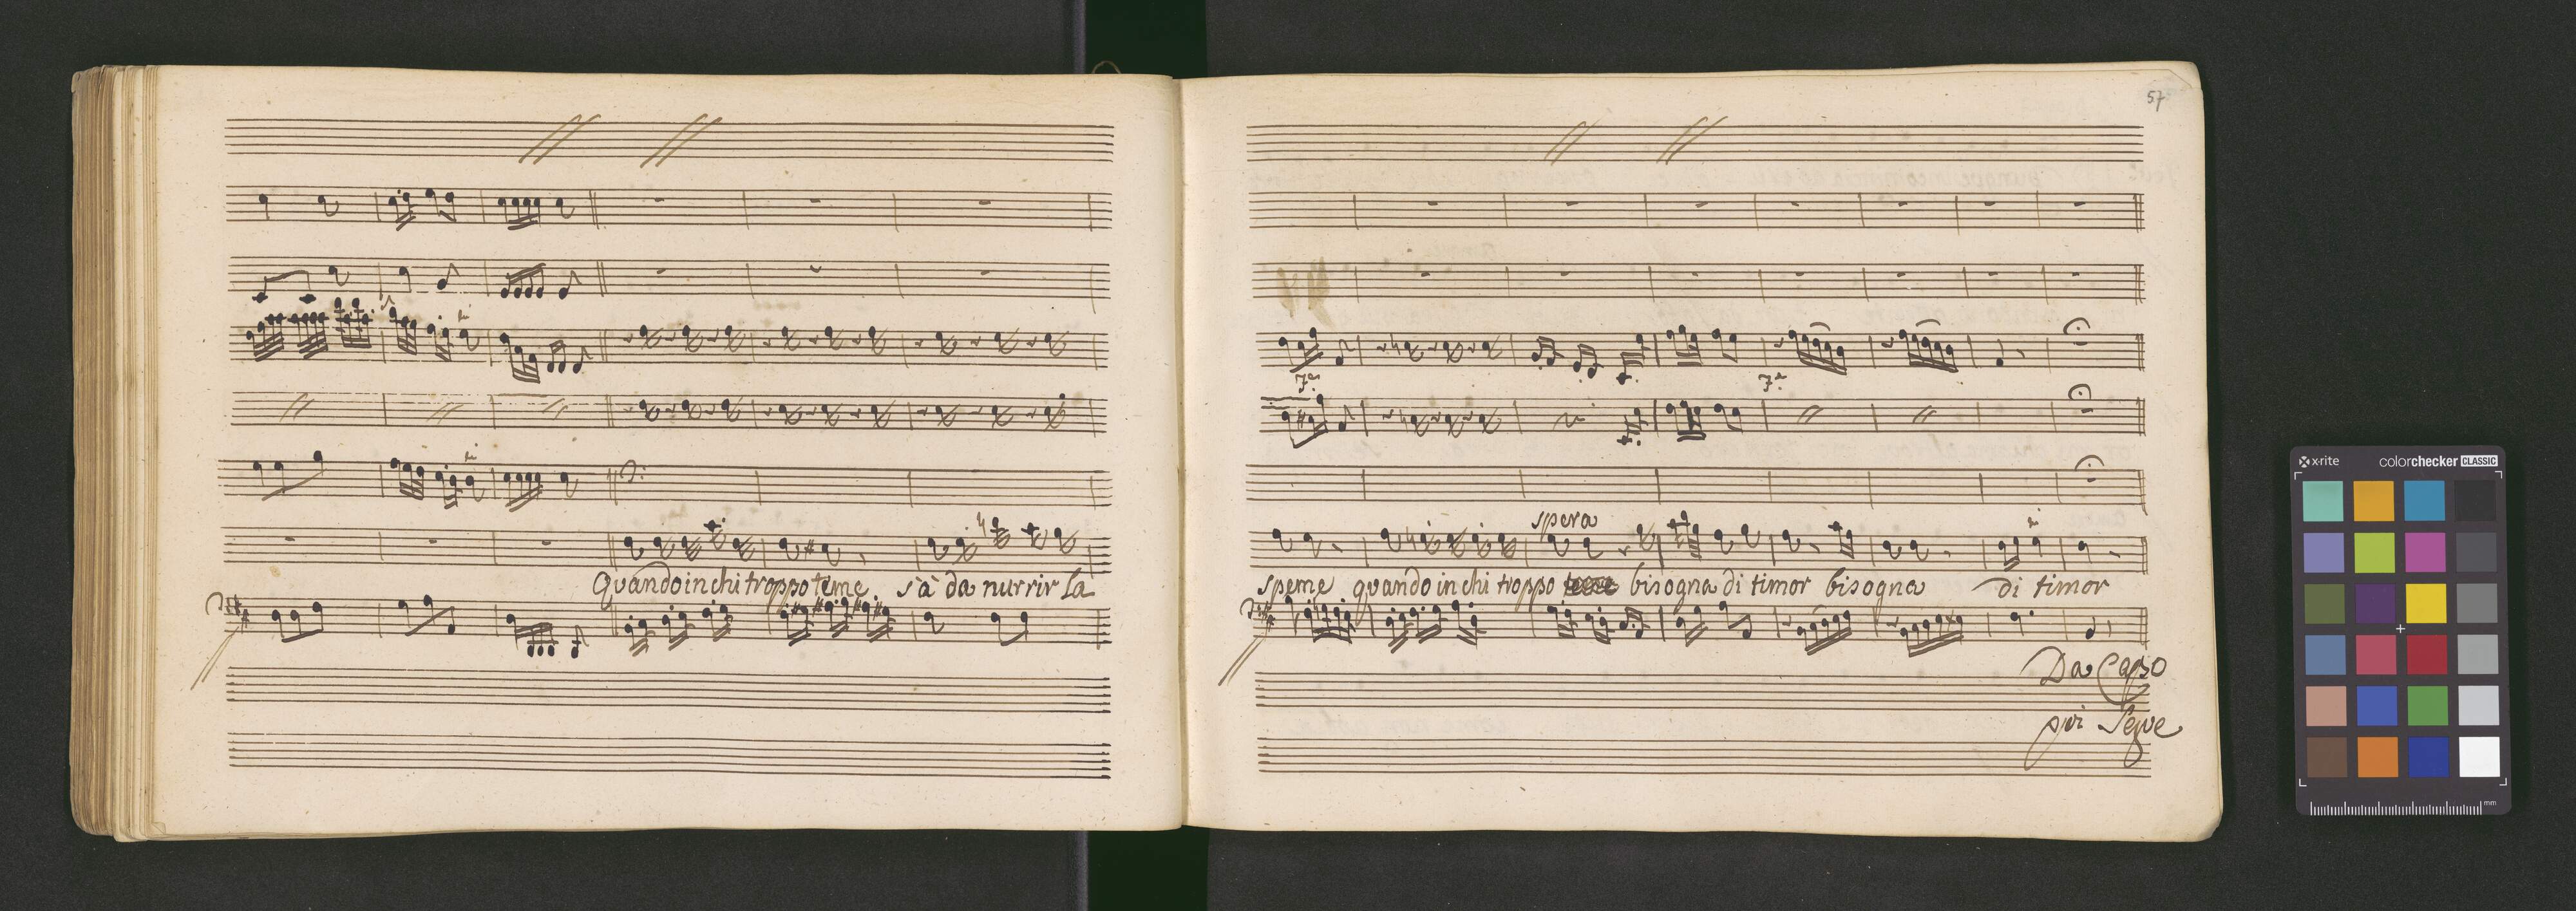 Quando in chi troppo teme s'à da nurrir la
57
spera
speme quando in chi troppo bisogna di timor bisogna di timor
Da Capo
poi Segue
x-rite colorchecker CLASSIC
mm